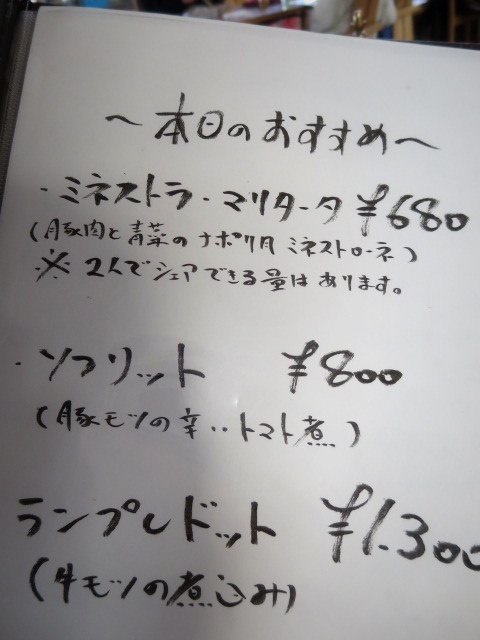 ～本日のおすすめ～
・ミネストラ・マリタータ ¥680
(豚肉と青菜のナポリ風ミネストローネ)
※2人でシェアできる量はあります。
・ソフリット ¥800
(豚モツの辛いトマト煮)
ランプレドット ¥1.300
(牛モツの煮込み)